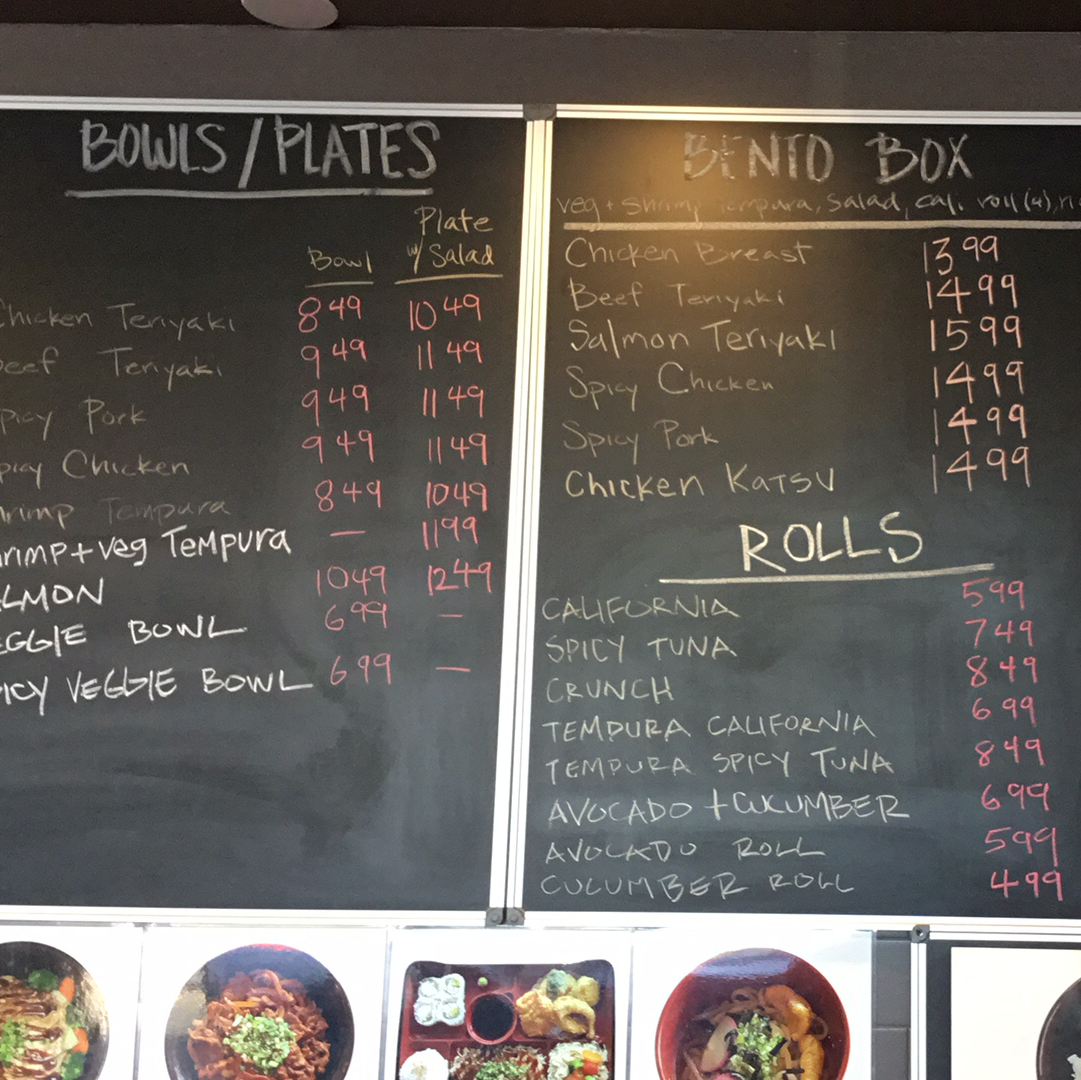 BOWLS/PLATES
Bowl Plate w/ Salad
Chicken Teriyaki 849 1049
Beef Teriyaki 949 1149
Spicy Pork 949 1149
Spicy Chicken 949 1149
Shrimp Tempura 849 1049
Shrimp+veg Tempura — 1199
SALMON 1049 1249
VEGGIE BOWL 699 —
SPICY VEGGIE BOWL 699 —
BENTO BOX
veg + shrimp tempura, salad, cali. roll (4),
Chicken Breast 1399
Beef Teriyaki 1499
Salmon Teriyaki 1599
Spicy Chicken 1499
Spicy Pork 1499
Chicken Katsu 1499
ROLLS
CALIFORNIA 599
SPICY TUNA 749
CRUNCH 849
TEMPURA CALIFORNIA 699
TEMPURA SPICY TUNA 849
AVOCADO + CUCUMBER 699
AVOCADO ROLL 599
CUCUMBER ROLL 499